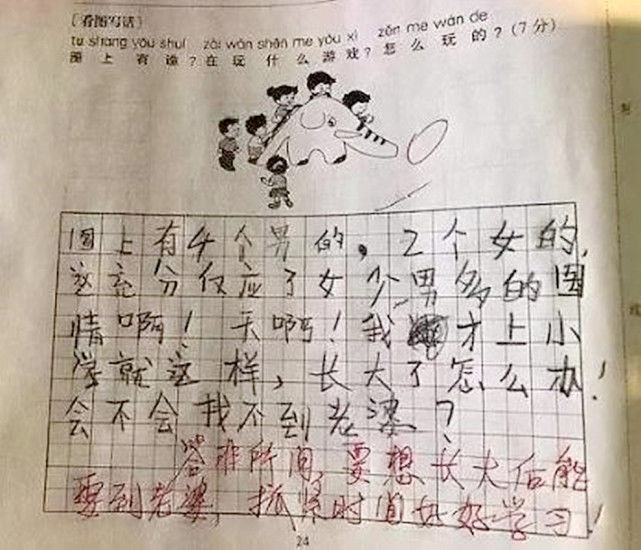 〔看图写话〕
tu shang you shuí zài wán shén me yóu xì zěn me wán de
图上有谁?在玩什么游戏?怎么玩的?(7分)
图上有4个男的,2个女的,
这充分仅应了女少男多的国
情啊!天啊!我才上小
学就这样,长大了怎么办!
会不会找不到老婆?
答非所问,要想长大后能
娶到老婆,抓紧时间好好学习!
24